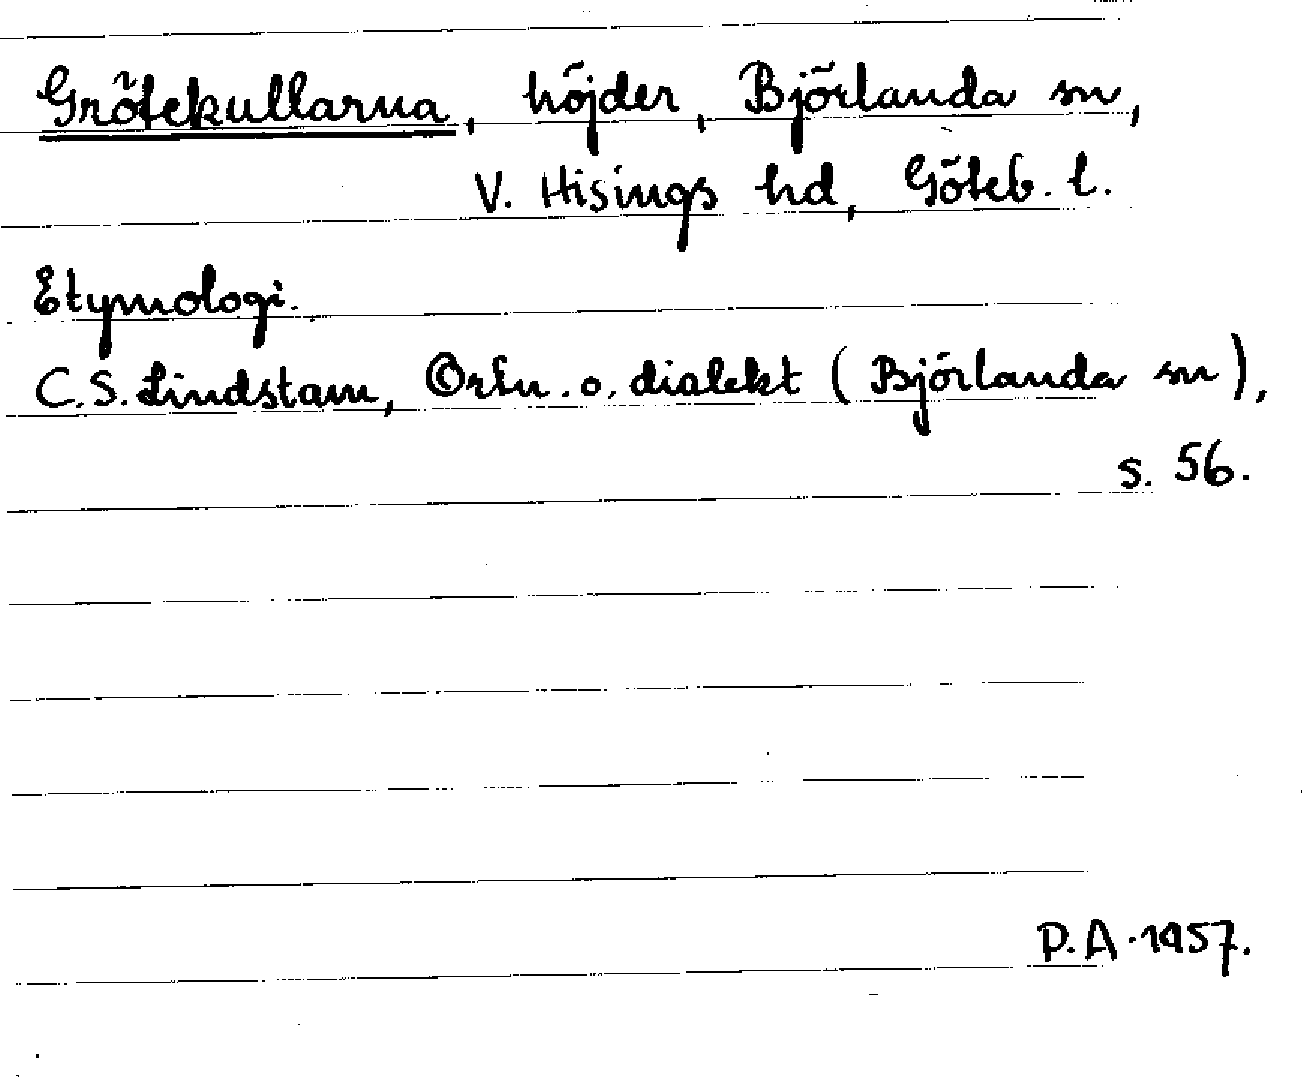 Grötekullarna, höjder, Björlanda sn,
V. Hisings hd, Göteb. l.
Etymologi.
C.S. Lindstam, Ortn. o. dialekt (Björlanda sn),
s. 56.
P.A. 1957.